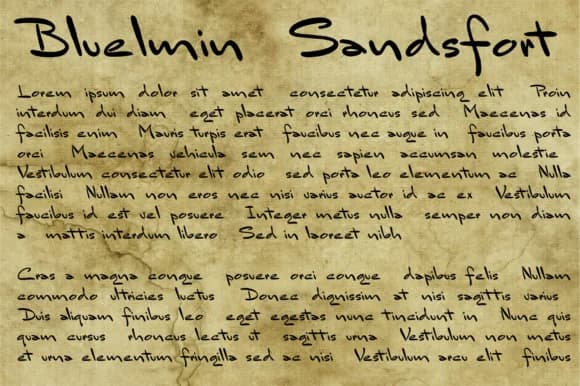 Bluelmin Sandsfort
Lorem ipsum dolor sit amet consectetur adipiscing elit Proin
interdum dui diam eget placerat orci rhoncus sed Maecenas id
facilisis enim Mauris turpis erat faucibus nec augue in faucibus porta
orci Maecenas vehicula sem nec sapien accumsan molestie
Vestibulum consectetur elit odio sed porta leo elementum ac Nulla
facilisi Nullam non eros nec nisi varius auctor id ac ex Vestibulum
faucibus id est vel posuere Integer metus nulla semper non diam
a mattis interdum libero Sed in laoreet nibh
Cras a magna congue posuere orci congue dapibus felis Nullam
commodo ultricies luctus Donec dignissim at nisi sagittis varius
Duis aliquam finibus leo eget egestas nunc tincidunt in Nunc quis
quam cursus rhoncus lectus ut sagittis urna Vestibulum non metus
et urna elementum fringilla sed ac nisi Vestibulum arcu elit finibus